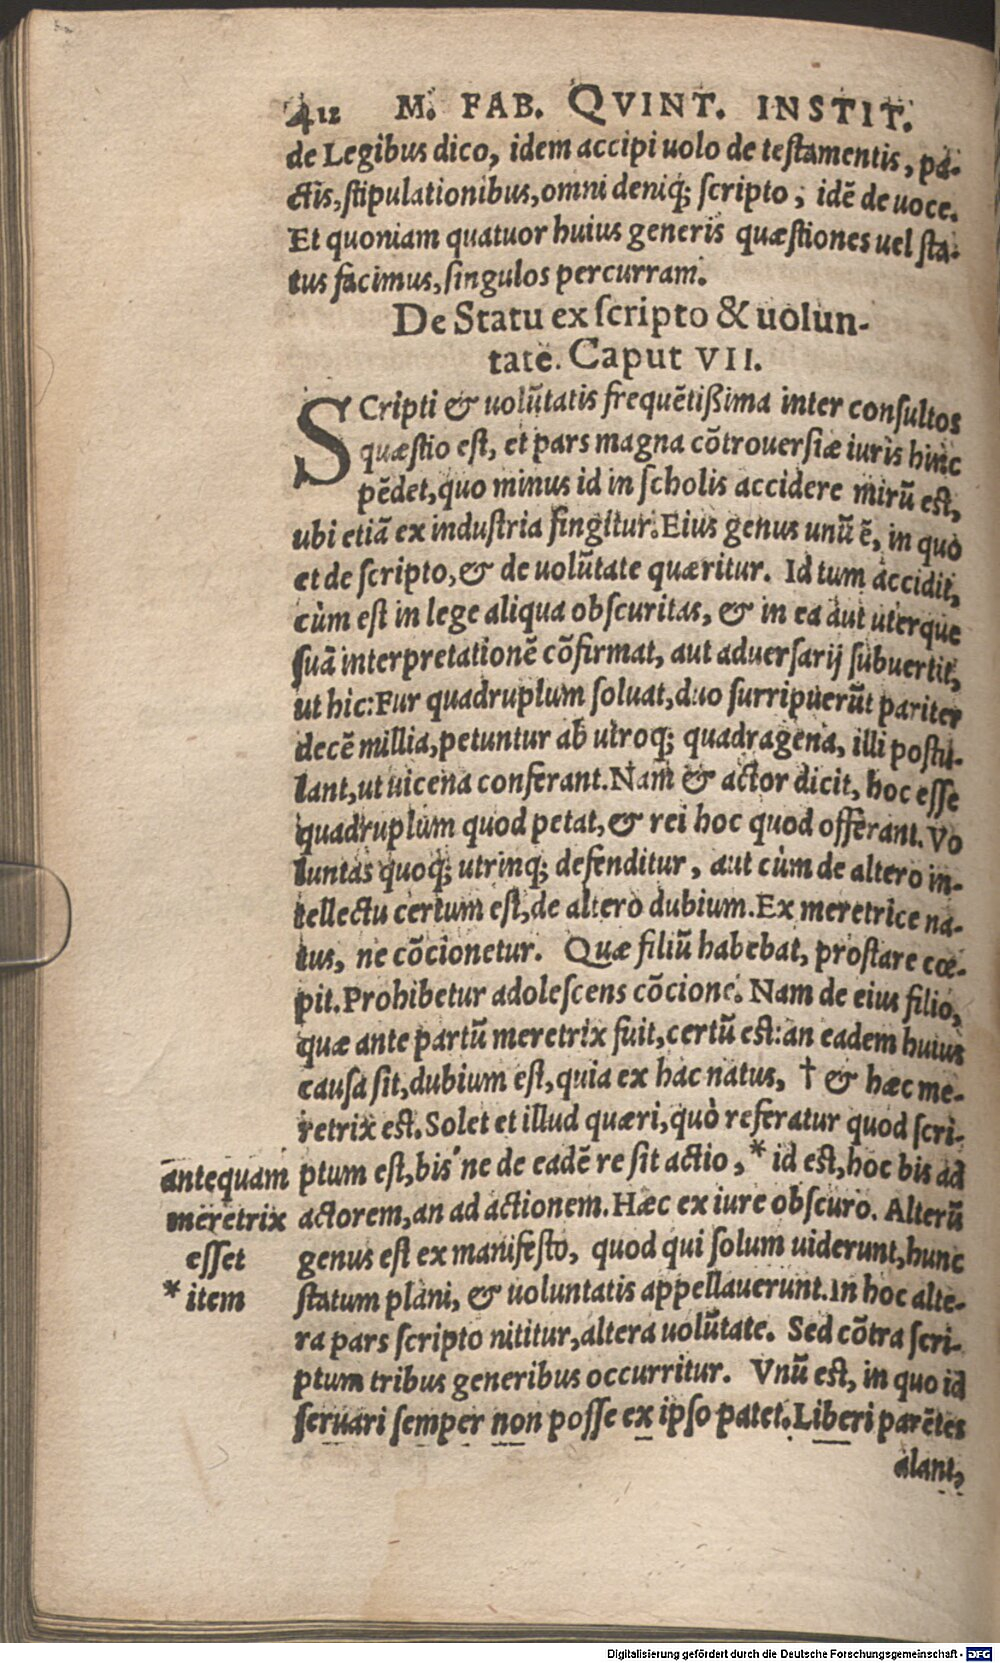 412 M. FAB. QVINT. INSTIT.
de Legibus dico, idem accipi uolo de testamentis, pa-
ctis, stipulationibus, omni deniq; scripto, idē de uoce.
Et quoniam quatuor huius generis quæstiones uel sta-
tus facimus, singulos percurram.
De Statu ex scripto & uolun-
tate. Caput VII.
SCripti & uolūtatis frequētißima inter consultos
quæstio est, et pars magna cōtrouersiæ iuris hinc
pēdet, quo minus id in scholis accidere mirū est,
ubi etiā ex industria fingitur. Eius genus unū ē, in quò
et de scripto, & de uolūtate quæritur. Id tum accidit,
cùm est in lege aliqua obscuritas, & in ea aut uterque
suā interpretationē cōfirmat, aut aduersarij subuertit,
ut hic: Fur quadruplum soluat, duo surripuerūt pariter
decē millia, petuntur ab utroq; quadragena, illi postu-
lant, ut uicena conferant. Nam & actor dicit, hoc esse
quadruplum quod petat, & rei hoc quod offerant. Vo
luntas quoq; utrinq; defenditur, aut cùm de altero in-
tellectu certum est, de altero dubium. Ex meretrice na-
tus, ne cōcionetur. Quæ filiū habebat, prostare cœ-
pit. Prohibetur adolescens cōcione. Nam de eius filio,
quæ ante partū meretrix fuit, certū est: an eadem huius
causa sit, dubium est, quia ex hac natus, † & hæc me-
retrix est. Solet et illud quæri, quò referatur quod scri-
antequam ptum est, bis'ne de eadē re sit actio, * id est, hoc bis ad
meretrix actorem, an ad actionem. Hæc ex iure obscuro. Alterū
esset genus est ex manifesto, quod qui solum uiderunt, hunc
* item statum plani, & uoluntatis appellauerunt. In hoc alte-
ra pars scripto nititur, altera uolūtate. Sed cōtra scri-
ptum tribus generibus occurritur. Vnū est, in quo id
seruari semper non posse ex ipso patet. Liberi parētes
alant,
Digitalisierung gefördert durch die Deutsche Forschungsgemeinschaft - DFG